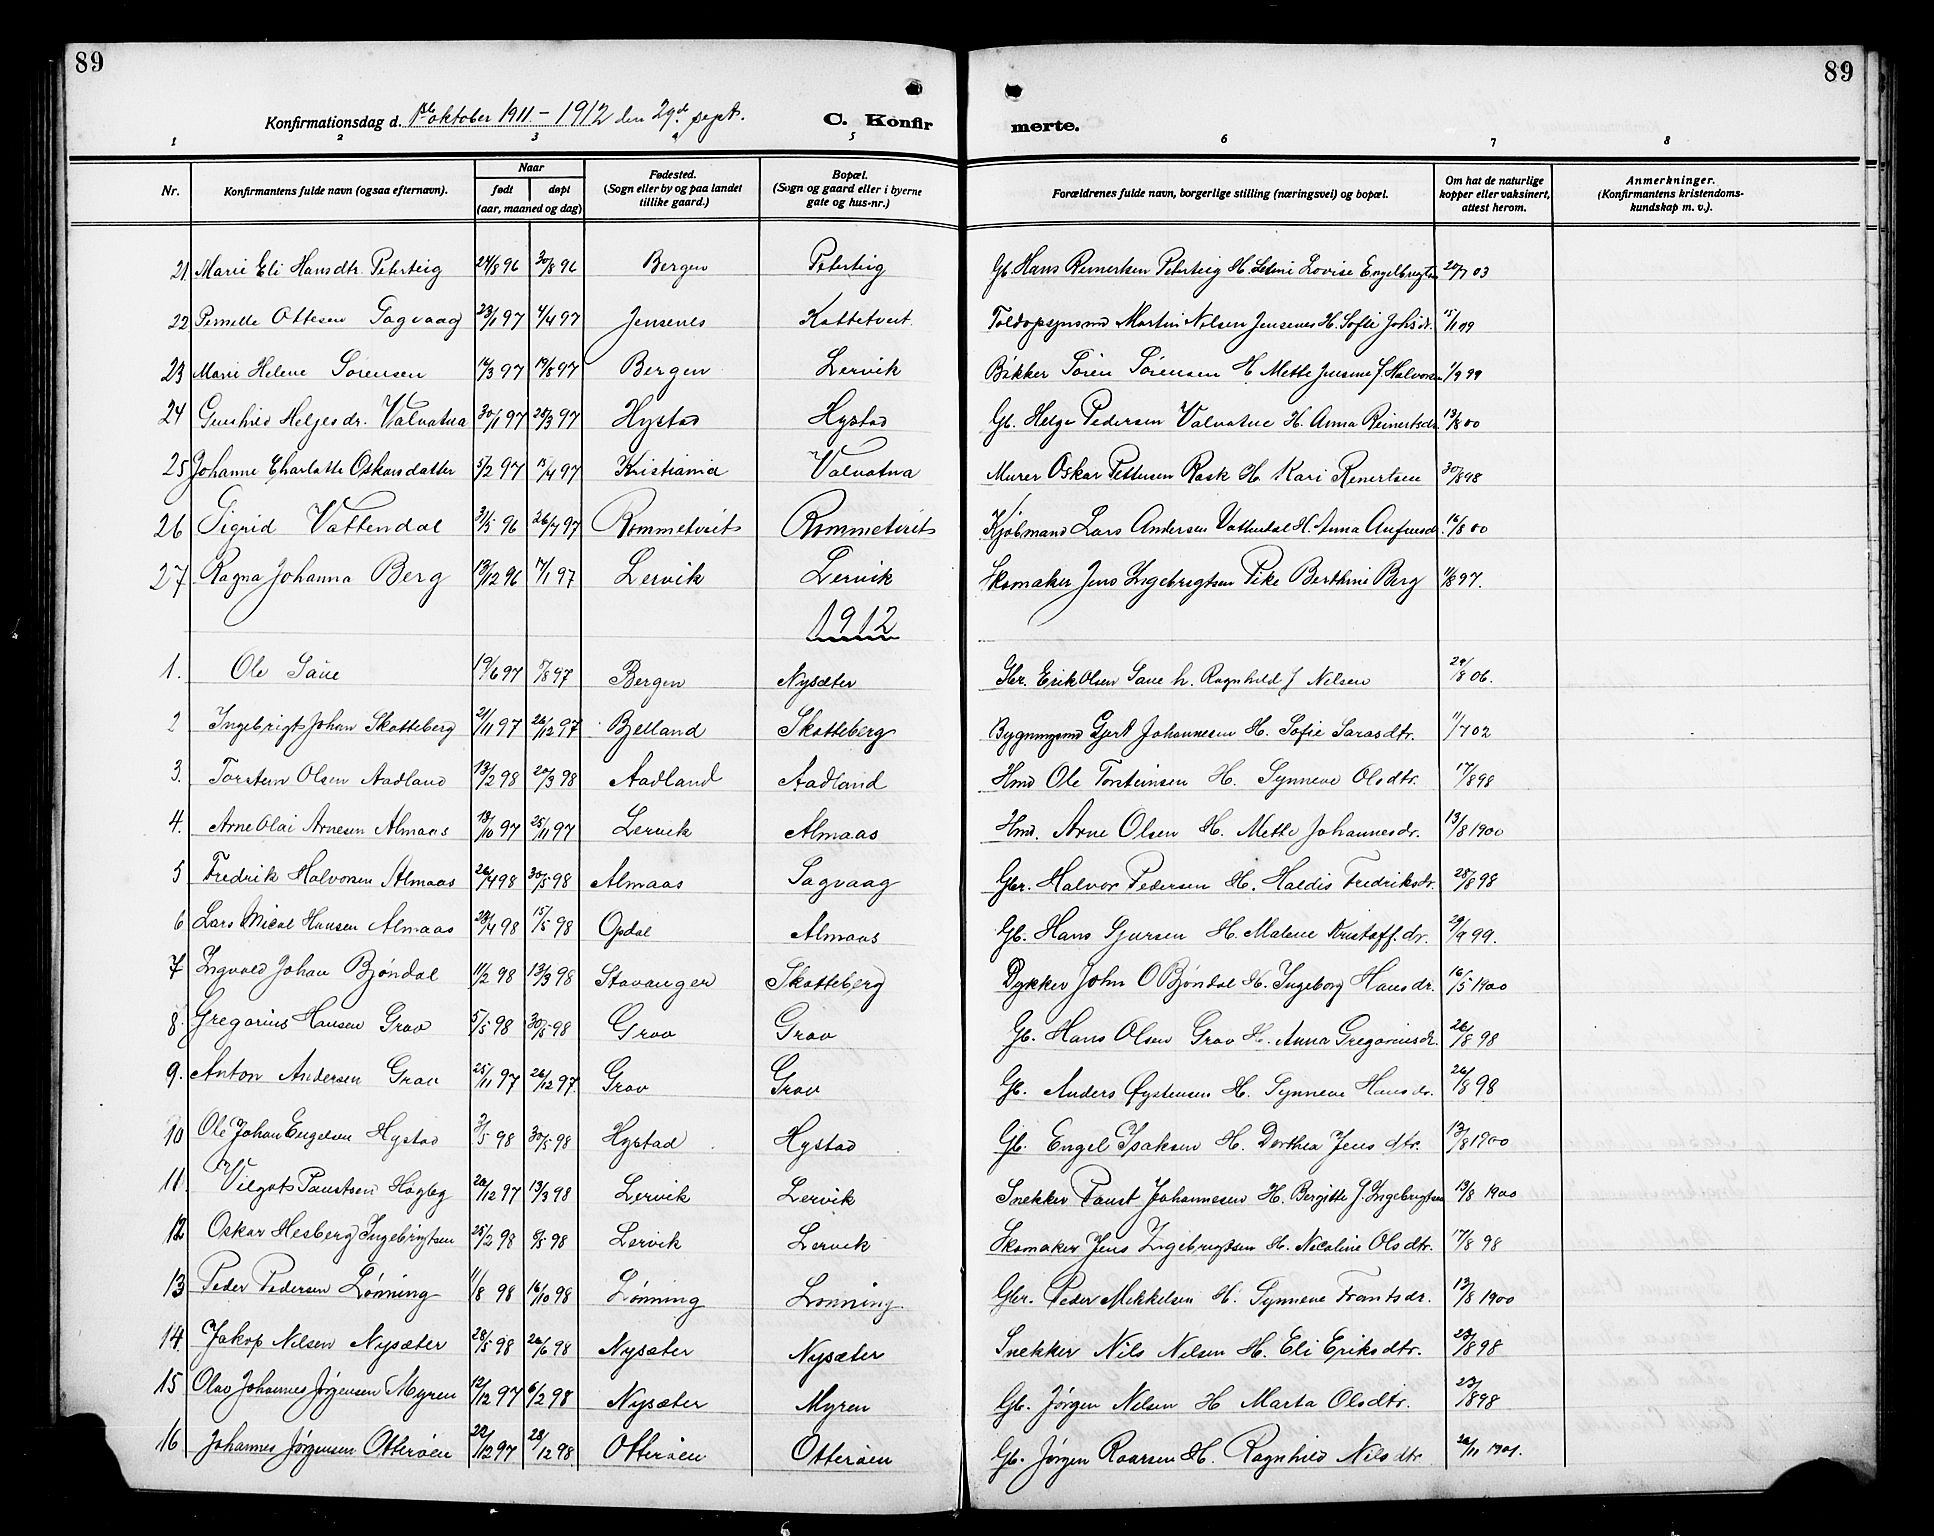 89
89
Konfirmationsdag d. 1ste oktober 1911 - 1912 den 29de sept. C. Konfirmerte.
1 2 3 4 5 6 7 8
Nr. Konfirmantens fulde navn (ogsaa efternavn). Naar født døpt (aar, maaned og dag) Fødested. (Sogn eller by og paa landet tillike gaard.) Bopæl. (Sogn og gaard eller i byerne gate og hus-nr.) Forældrenes fulde navn, borgerlige stilling (næringsvei) og bopæl. Om hat de naturlige kopper eller vaksinert, attest herom. Anmerkninger. (Konfirmantens kristendomskundskap m. v.).
21 Marie Eli Hansdtr. Peterteig 24/8 96 30/8 96 Bergen Peterteig Gb. Hans Reinertsen Peterteig H. Lovise Engelbregtsen 20/7 03
22 Pernille Ottesen Sagvaag 23/1 97 4/4 97 Jensenes Kattetveit Toldopsynsmd Martin Nilsen Jensenes H. Sofie Johsdr. 15/1 09
23 Marie Helene Sørensen 97 97 Bergen Lervik Bakker Søren Sørensen H. Mette Jensine f. Halvorsen 1/9 99
24 Gunhild Helgesdr. Valvatna 30/1 97 28/3 97 Hystad Hystad Gb. Helge Pedersen Valvatne H. Anna Reinertsdr. 13/8 00
25 Johanne Charlotte Oskarsdatter 5/2 97 15/4 97 Kristiania Valvatna Murer Oskar Pettersen Rask H. Kari Renertsen 30/8 98
26 Sigrid Vattendal 31/5 96 26/7 97 Rommetveit Rommetveit Kjøbmand Lars Andersen Vattendal H. Anna 16/8 00
27. Ragna Johanna Berg 13/12 96 17/1 97 Lervik Lervik Skomaker Jens Ingebrigtsen Pike Berthine Berg 11/8 97.
1912
1. Ole Saue 19/6 97 97 Bergen Nysæter Gbr. Erik Olsen Saue h. Ragnhild f Nilsen 29/8 06.
2 Ingebrigt Johan Skotteberg 21/11 97 26/12 97 Bjelland Skotteberg Bygningsmd Gjert Johannesen H. Sofie Larasdtr. 11/7 02
3. Torstein Olsen Aadland 13/2 98 20/3 98 Aadland Aadland Hmd Ole Torsteinsen H. Synneve Olsdtr. 17/8 98
4. Arne Olai Arnesen Almaas 18/10 97 25/11 97 Lervik Almaas Hmd. Arne Olsen H. Mette Johannesdr. 13/8 1900
5 Fredrik Halvorsen Almaas 26/4 98 30/5 98 Almaas Sagvaag Gbr. Halvor Pedersen H. Haldis Fredriksdr. 28/8 98
6 Lars Mical Hansen Almaas 24/4 98 15/5 98 Opdal Almaas Gb. Hans Gjersen H. Malene Kristoff.dr. 29/9 99.
7 Ingvald Johan Bjøndal 11/2 98 13/3 98 Stavanger Skotteberg Dykker John O Bjøndal H. Ingeborg Hansdr. 16/5 1900
8. Gregorius Hansen Grov 5/5 98 30/5 98 Grov Grov Gb. Hans Olsen Grov H. Anna Gregoriusdr. 26/8 98
9. Anton Andersen Grov 25/11 97 26/12 97. Grov Grov Gb. Anders Øystensen H. Synneve Hansdr. 26/8 98
10 Ole Johan Engelsen Hystad 3/5 98 30/5 98 Hystad Hystad Gb. Engel Isaksen H. Dorthea Jensdtr. 13/8 1900
11. Vilgot Faustsen Høgleg 20/12 97 13/3 98 Lervik Lervik Snekker Faust Johannesen H. Bergitte J. Ingebrigtsen 13/8 1900
12 Oskar Hesberg Ingebrigtsen 25/2 98 98 Lervik Lervik Skomaker Jens Ingebrigtsen H. Nicoline Olsdtr. 17/8 98
13 Peder Pedersen Lønning 11/8 98 16/10 98 Lønning Lønning. Gbr. Peder Mikkelsen H. Synneve Frantsdr. 13/8 1900
14. Jakop Nilsen Nysæter 28/5 98 26/6 98 Nysæter Nysæter Snekker Nils Nilsen H. Eli Eriksdtr. 23/8 98
15 Olav Johannes Jørgensen Myren 12/12 97 6/2 98 Nysæter Myren Gb. Jørgen Nilsen H Marta Olsdtr. 23/8 98
16 Johannes Jørgensen Otterøen 22/12 97 28/12 98. Otterøen Otterøen Gb. Jørgen Roarsen H. Ragnhild Nilsdtr 20/11 1901.